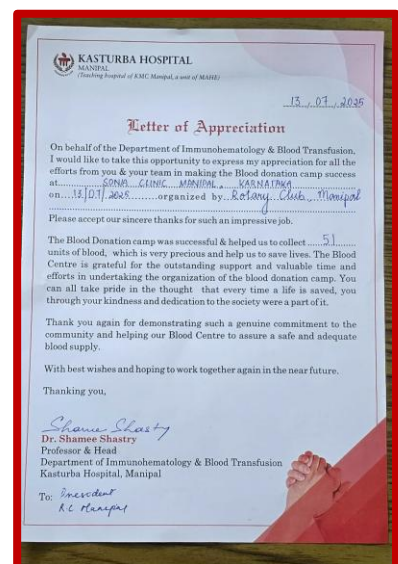 KASTURBA HOSPITAL
MANIPAL
(Teaching hospital of KMC Manipal, a unit of MAHE)
13.07.2025
Letter of Appreciation
On behalf of the Department of Immunohematology & Blood Transfusion,
I would like to take this opportunity to express my appreciation for all the
efforts from you & your team in making the Blood donation camp success
at SONIA CLINIC MANIPAL, KARNATAKA
on 13/07/2025 organized by Rotary Club, Manipal
Please accept our sincere thanks for such an impressive job.
The Blood Donation camp was successful & helped us to collect 51
units of blood, which is very precious and help us to save lives. The Blood
Centre is grateful for the outstanding support and valuable time and
efforts in undertaking the organization of the blood donation camp. You
can all take pride in the thought that every time a life is saved, you
through your kindness and dedication to the society were a part of it.
Thank you again for demonstrating such a genuine commitment to the
community and helping our Blood Centre to assure a safe and adequate
blood supply.
With best wishes and hoping to work together again in the near future.
Thanking you,
Shamee Shastry
Dr. Shamee Shastry
Professor & Head
Department of Immunohematology & Blood Transfusion
Kasturba Hospital, Manipal
To: President
R.C Manipal